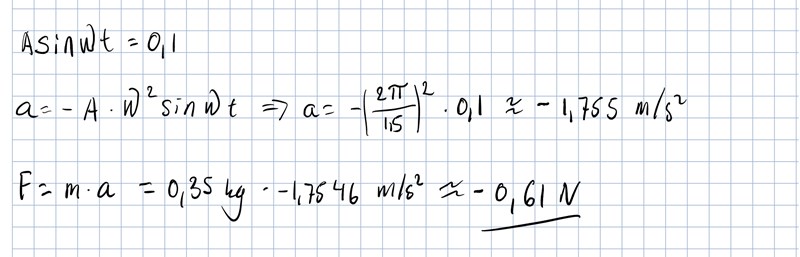 A sin ωt = 0,1
a = - A · ω² sin ω t ⇒ a = -(2π/1,5)² · 0,1 ≈ - 1,755 m/s²
F = m · a = 0,35 kg · -1,7546 m/s² ≈ - 0,61 N